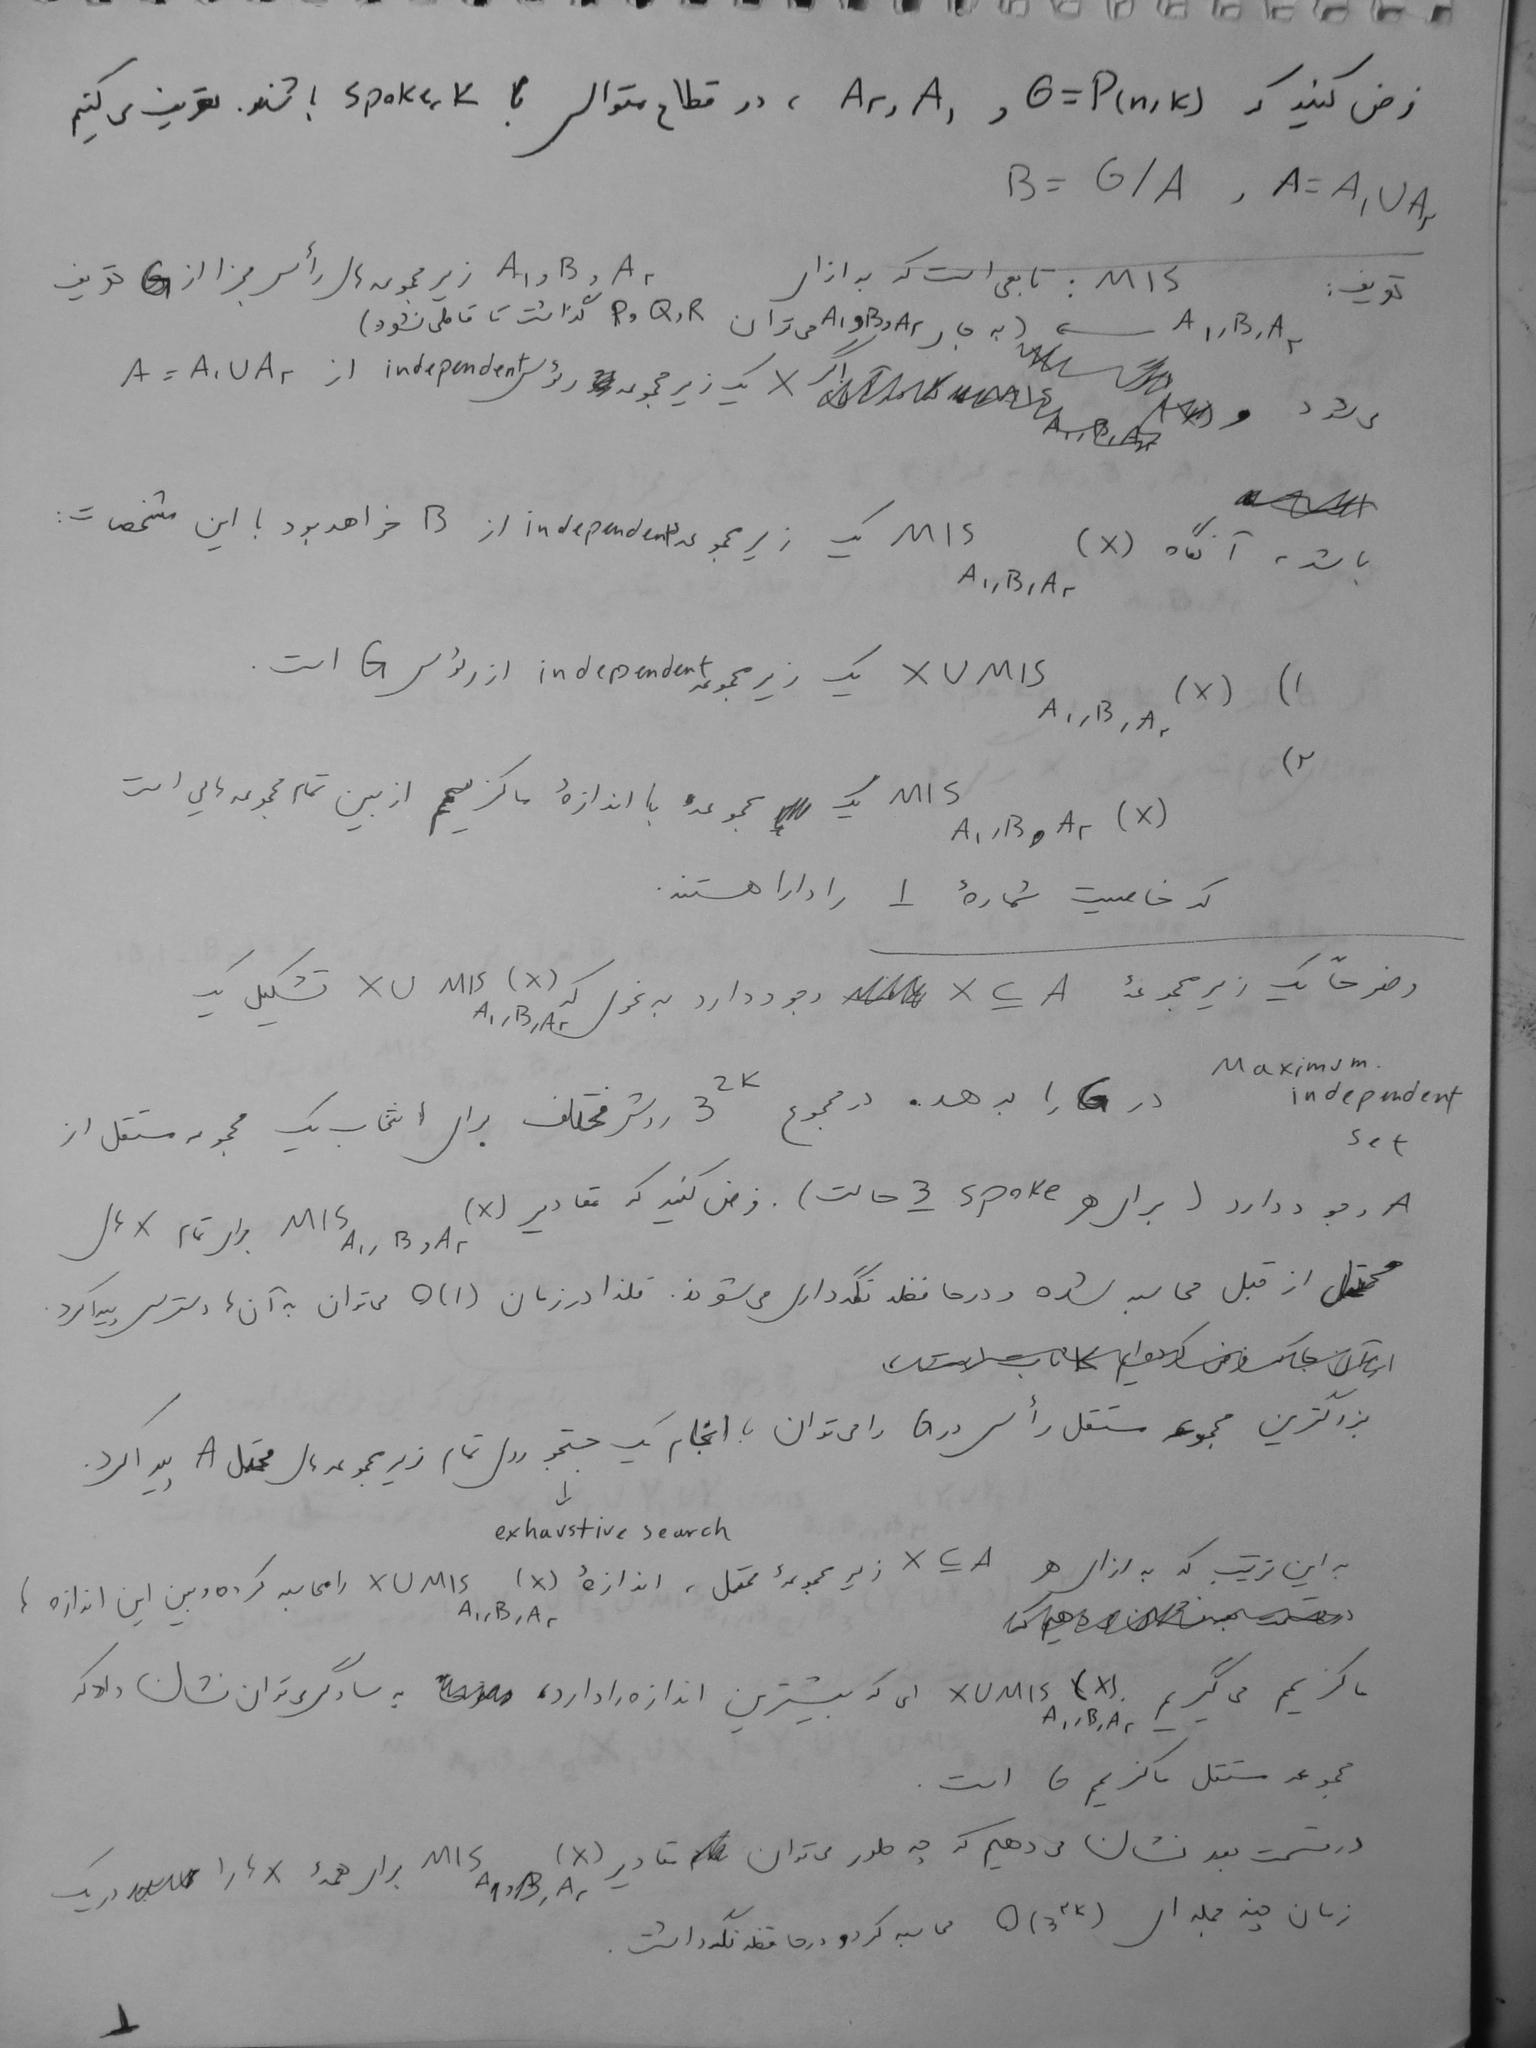 فرض کنید که G=P(n,k) و A₁ و A₂ ، دو قطاع متوالی با k spoke باشند. تعریف می‌کنیم
A = A₁ ∪ A₂ , B = G/A
تعریف: MIS : تابعی است که به ازای A₁ و B و A₂ زیرمجموعه‌های رأسی مجزا از G تعریف
A₁,B,A₂ (به جای A₁ و B و A₂ می‌توان P و Q و R گذاشت تا قاطی نشود)
می‌شود و اگر X یک زیرمجموعه رئوس independent از A = A₁ ∪ A₂
باشد، آنگاه MIS_{A₁,B,A₂}(X) یک زیرمجموعه independent از B خواهد بود با این مشخصات:
۱) X ∪ MIS_{A₁,B,A₂}(X) یک زیرمجموعه independent از رئوس G است.
۲) MIS_{A₁,B,A₂}(X) یک مجموعهٔ با اندازهٔ ماکزیمم از بین تمام مجموعه‌هایی است
که خاصیت شمارهٔ 1 را دارا هستند.
وضوحاً یک زیرمجموعهٔ X ⊆ A وجود دارد به نحوی که X ∪ MIS_{A₁,B,A₂}(X) تشکیل یک
Maximum independent set در G را بدهد. در مجموع 3^{2k} روش مختلف برای انتخاب یک مجموعه مستقل از
A وجود دارد (برای هر spoke 3 حالت). فرض کنید که مقادیر MIS_{A₁,B,A₂}(X) برای تمام X های
محتمل از قبل محاسبه شده و در حافظه نگهداری می‌شوند. فلذا در زمان O(1) می‌توان به آن‌ها دسترسی پیدا کرد.
بزرگترین مجموعه مستقل رأسی در G را می‌توان با انجام یک جستجو روی تمام زیرمجموعه‌های محتمل A پیدا کرد.
↓
exhaustive search
به این ترتیب که به ازای هر X ⊆ A زیرمجموعهٔ محتمل، اندازهٔ X ∪ MIS_{A₁,B,A₂}(X) را محاسبه کرده و بین این اندازه ها
ماکزیمم می‌گیریم X ∪ MIS_{A₁,B,A₂}(X) ای که بیشترین اندازه را دارد، به سادگی می‌توان نشان داد که
مجموعه مستقل ماکزیمم G است.
در قسمت بعد نشان می‌دهیم که چه طور می‌توان مقادیر MIS_{A₁,B,A₂}(X) برای همهٔ X ها را در یک
زمان چند جمله‌ای O(3^{2k}) محاسبه کرد و در حافظه نگه داشت.
1